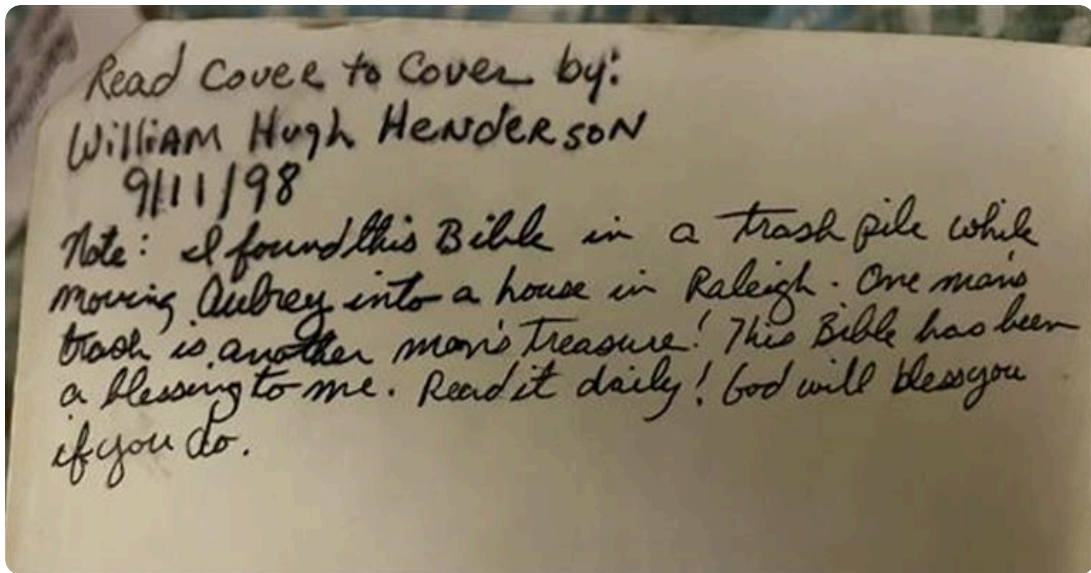 Read Cover to Cover by:
William Hugh Henderson
9/11/98
Note: I found this Bible in a trash pile while
moving Aubrey into a house in Raleigh. One man's
trash is another man's treasure! This Bible has been
a blessing to me. Read it daily! God will bless you
if you do.